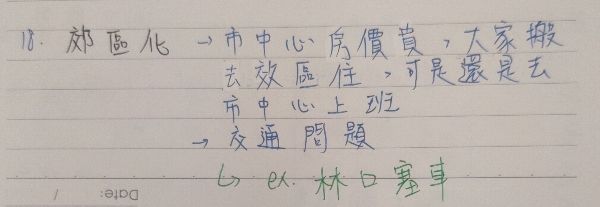 18. 郊區化 → 市中心房價貴，大家搬
去效區住，可是還是去
市中心上班
→ 交通問題
↳ ex. 林口塞車
Date: /